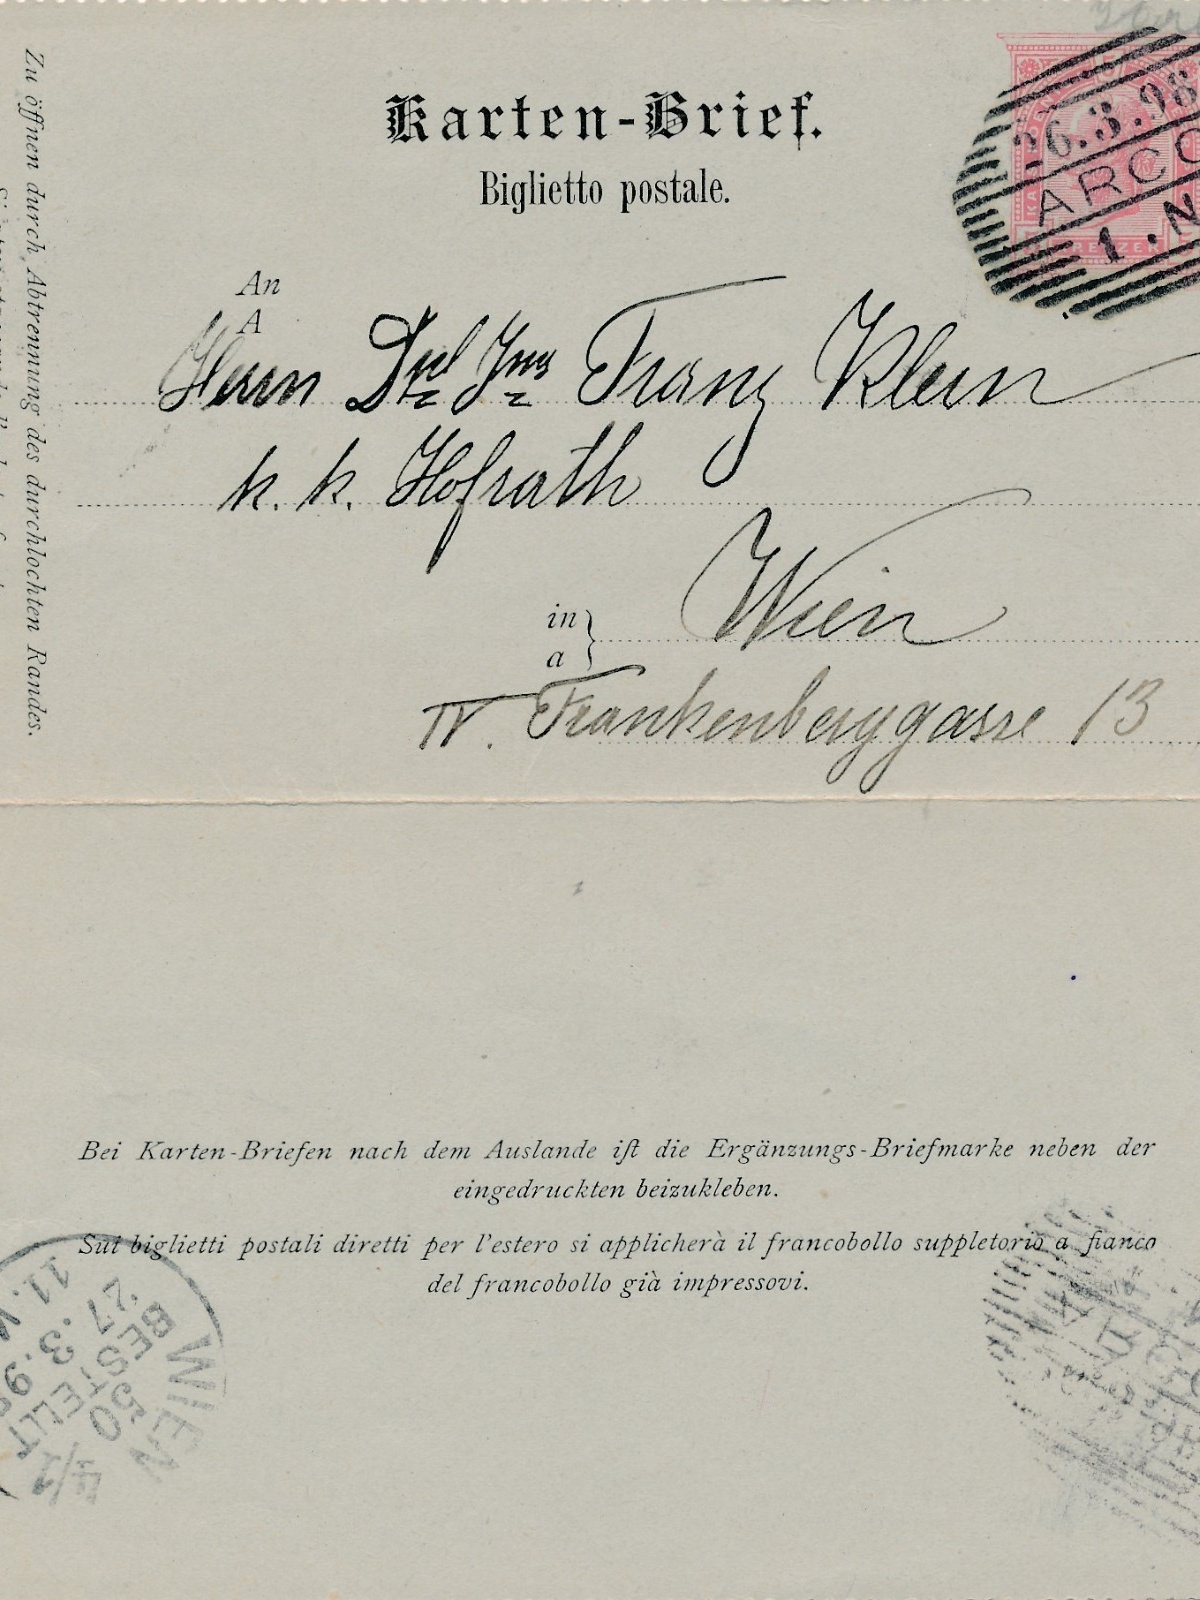 Karten-Brief.
Biglietto postale.
26.3.98
ARCO
1.N
KREUZER
An
A
Herrn Dr Franz Klein
k. k. Hofrath
in
a
Wien
IV. Frankenberggasse 13
Zu öffnen durch Abtrennung des durchlochten Randes.
Bei Karten-Briefen nach dem Auslande iſt die Ergänzungs-Briefmarke neben der
eingedruckten beizukleben.
Sui biglietti postali diretti per l'estero si applicherà il francobollo suppletorio a fianco
del francobollo già impressovi.
WIEN
4/1
50
BESTELLT
27.3.98
11.V
ARCO